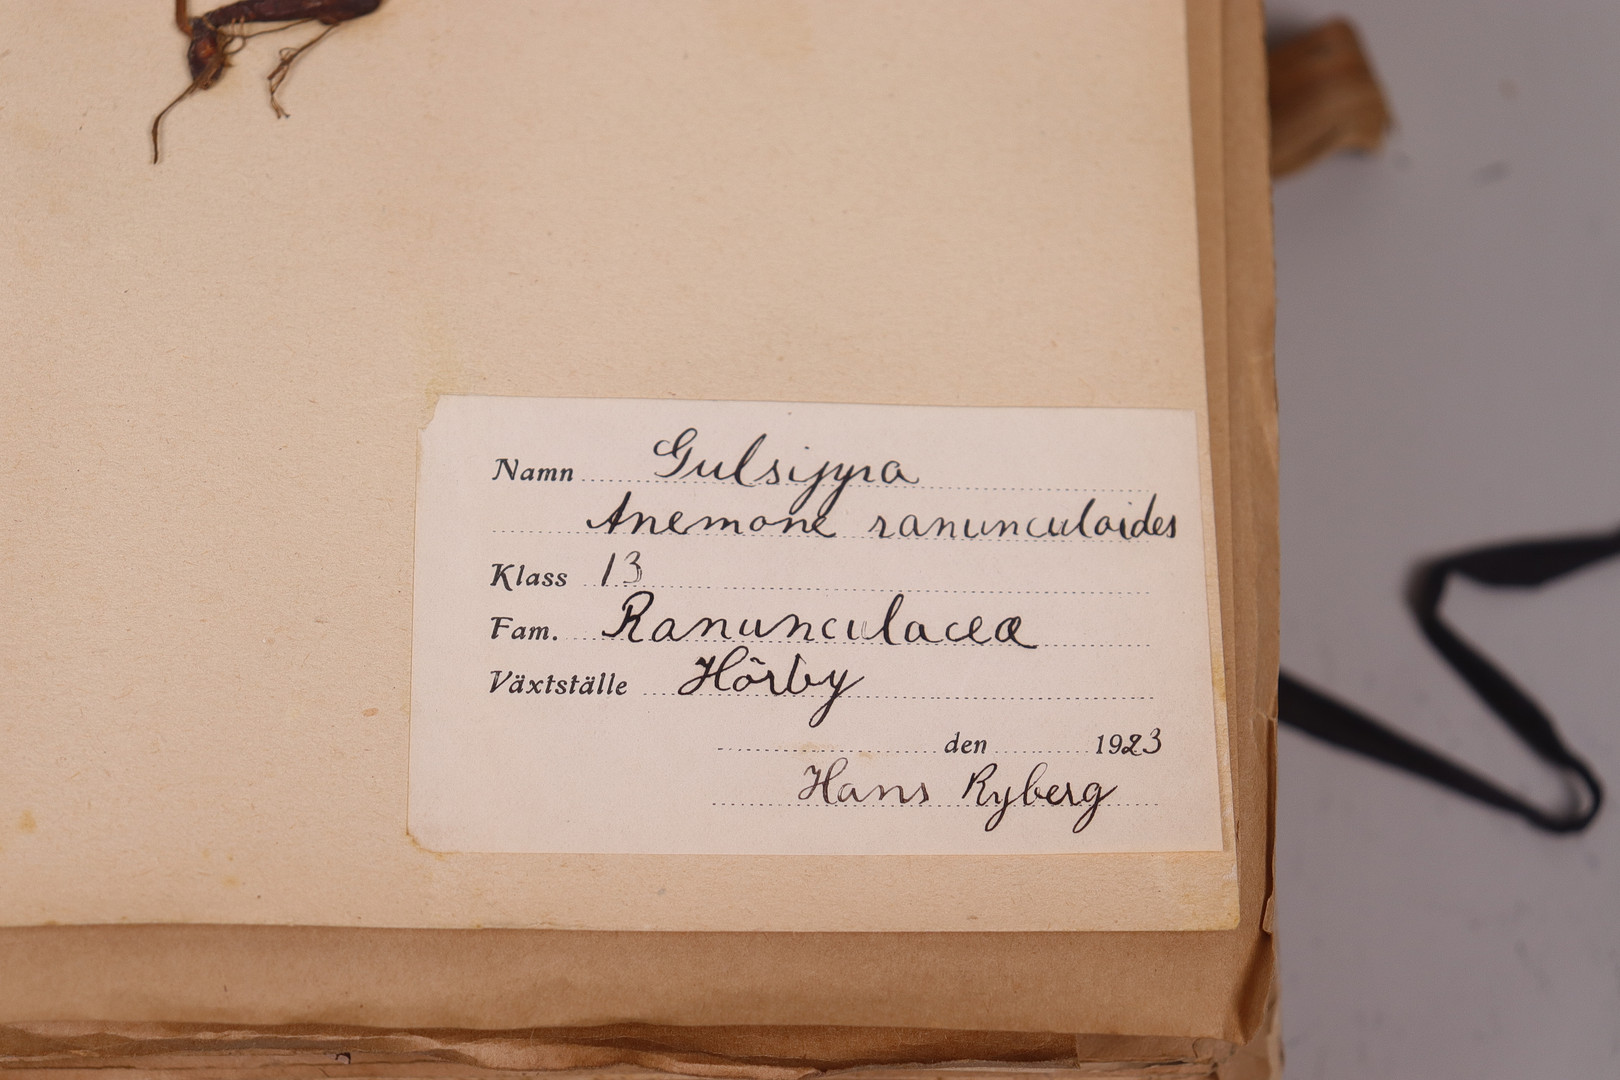 Namn Gulsippa
Anemone ranunculoides
Klass 13
Fam. Ranunculaceæ
Växtställe Hörby
den 1923
Hans Ryberg